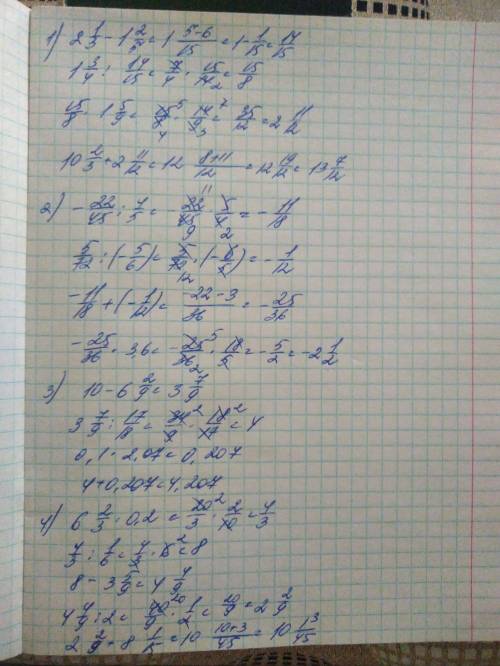 1) 2 1/3 - 1 2/5 = 1 (5-6)/15 = 1 - 1/15 = 14/15
1 3/4 : 14/15 = 7/4 · 15/14 2 = 15/8
15/8 · 1 5/9 = 15 5/8 4 · 14 7/9 3 = 35/12 = 2 11/12
10 2/3 + 2 11/12 = 12 (8+11)/12 = 12 19/12 = 13 7/12
2) - 22/45 : 4/5 = 22 11/45 9 · 5/4 2 = - 11/18
5/72 : (- 5/6) = 5/72 12 · (- 6/5) = - 1/12
- 11/18 + (- 1/12) = (-22-3)/36 = - 25/36
- 25/36 · 3,6 = - 25 5/36 2 · 18/5 = - 5/2 = -2 1/2
3) 10 - 6 2/9 = 3 7/9
3 7/9 : 17/18 = 34 2/9 · 18 2/17 = 4
0,1 · 2,07 = 0,207
4+0,207 = 4,207
4) 6 2/3 · 0,2 = 20 2/3 · 2/10 = 4/3
4/3 : 1/6 = 4/3 · 6 2 = 8
8 - 3 5/9 = 4 4/9
4 4/9 : 2 = 40 20/9 · 1/2 = 20/9 = 2 2/9
2 2/9 + 8 1/15 = 10 (10+3)/45 = 10 13/45